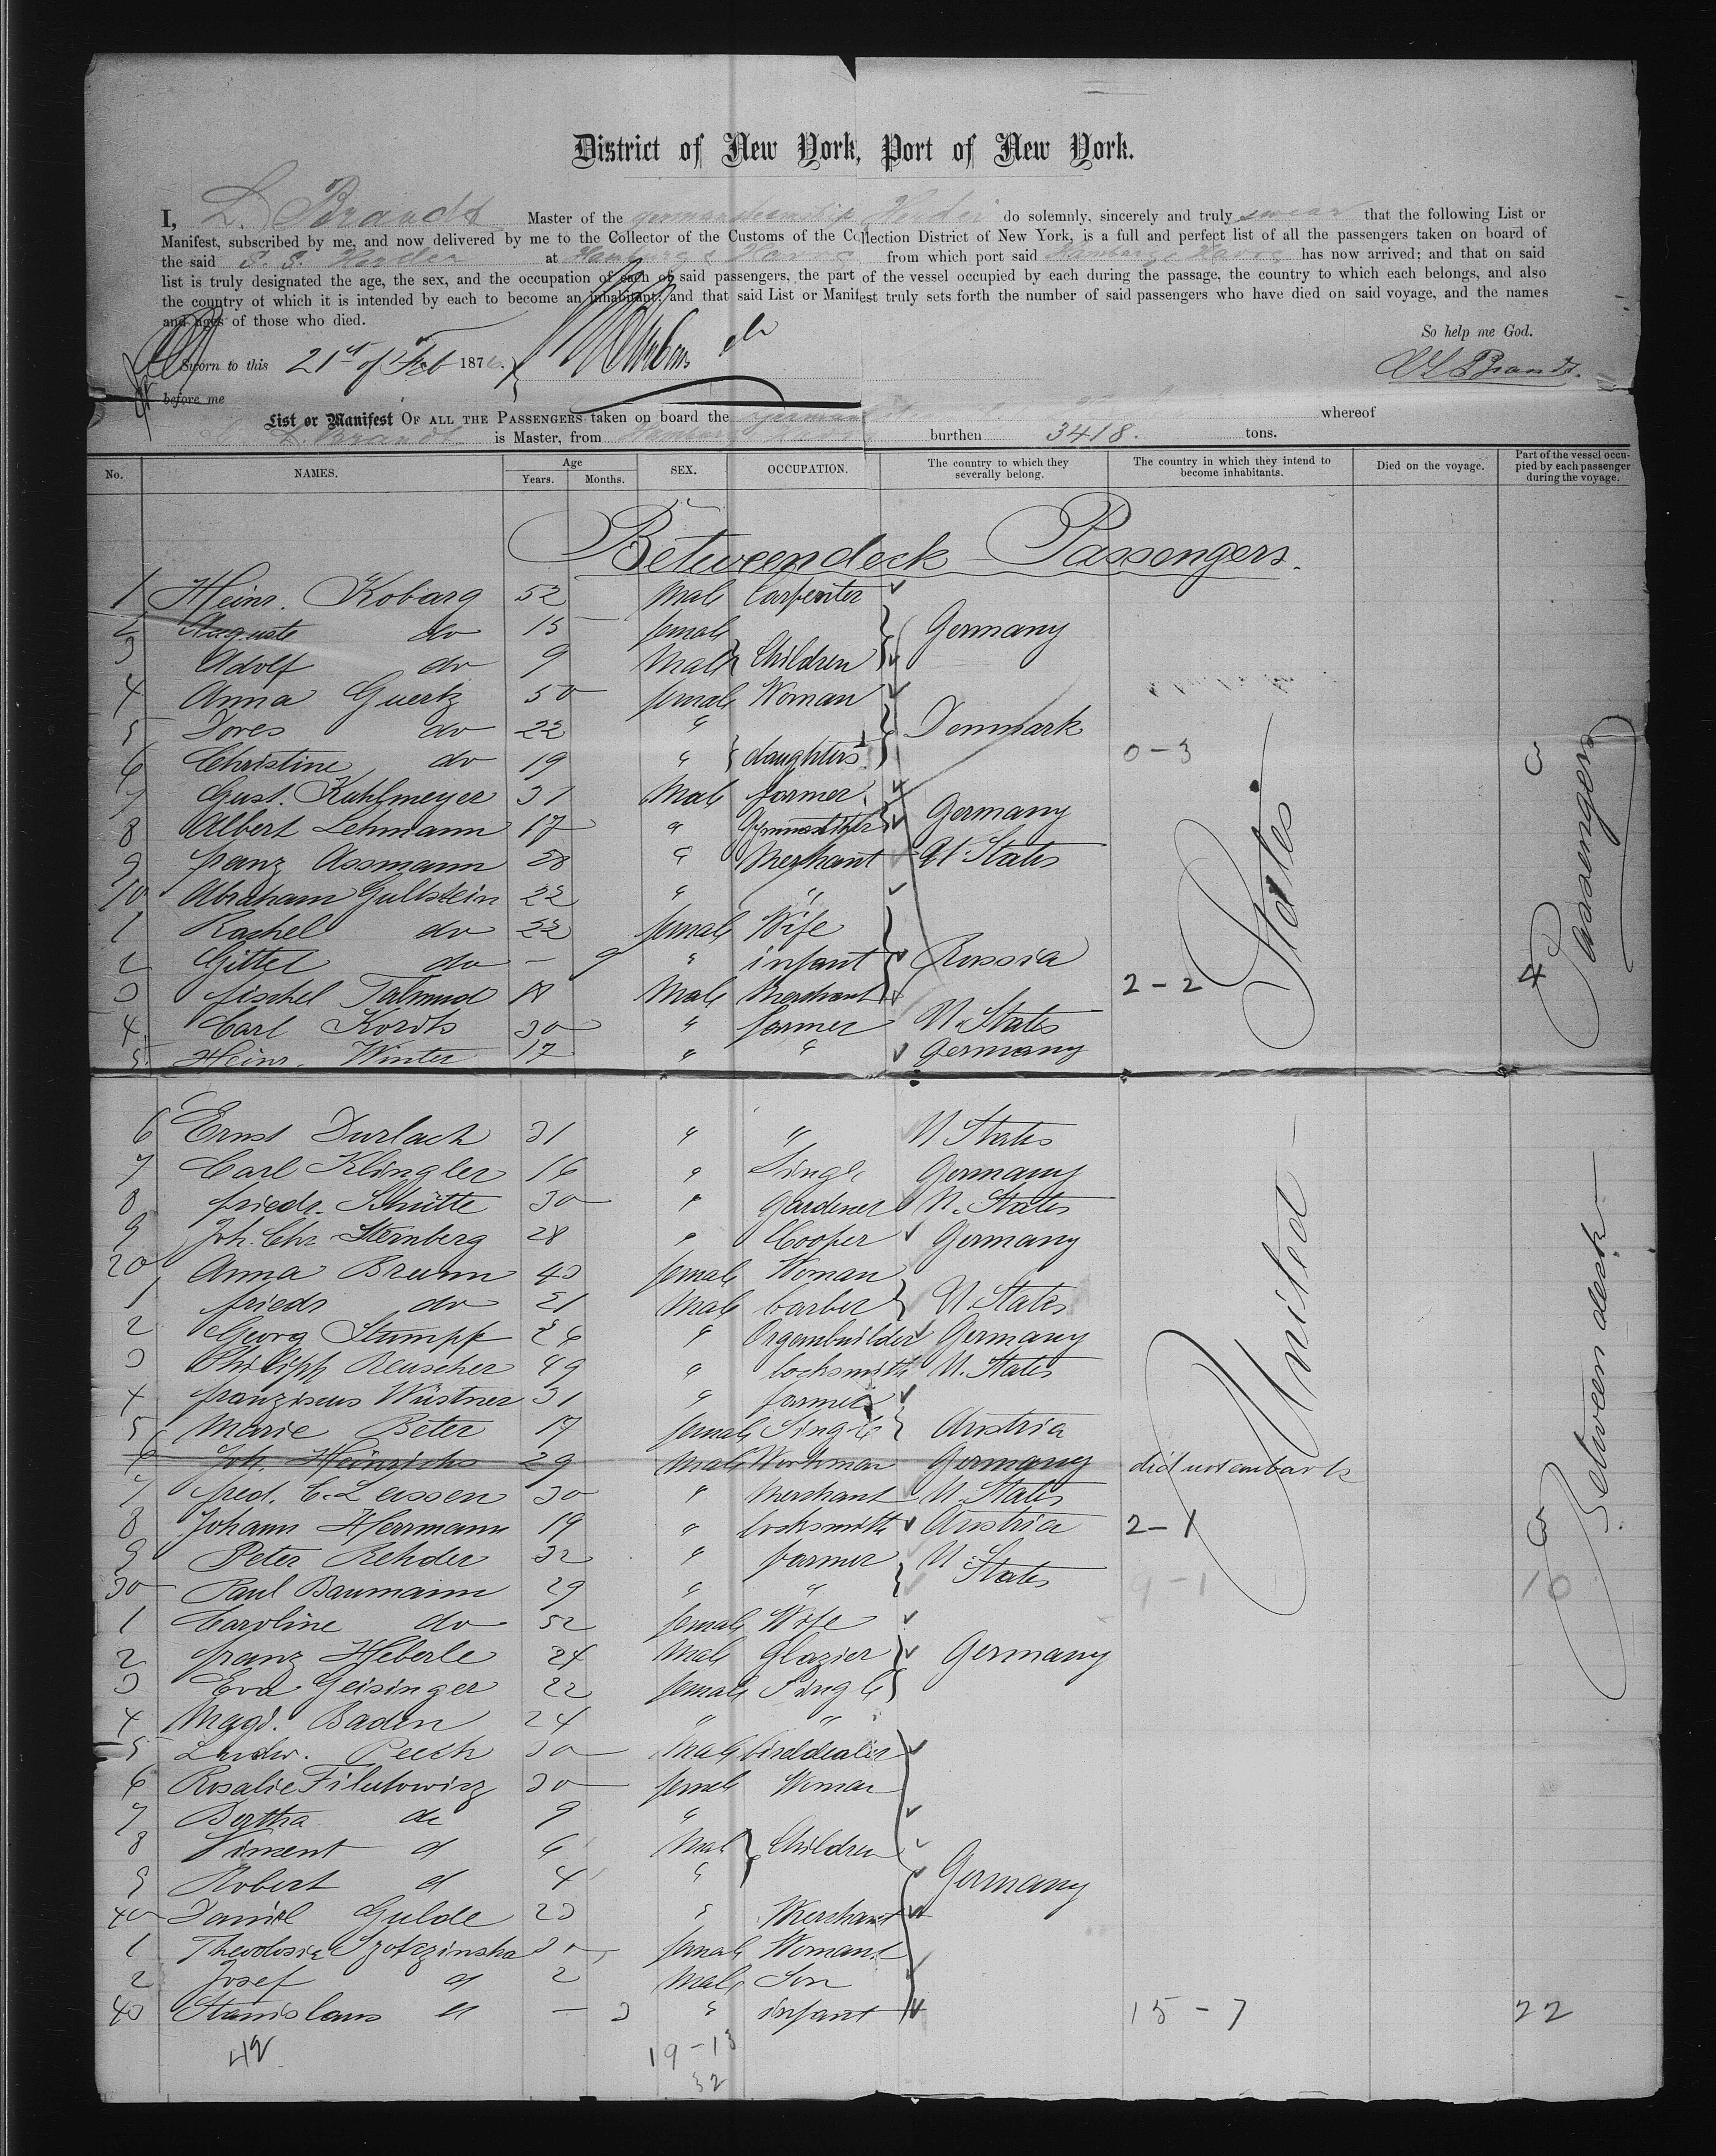 District of New York, Port of New York.
I, L. Brandt Master of the german steamship Herder do solemnly, sincerely and truly swear that the following List or
Manifest, subscribed by me, and now delivered by me to the Collector of the Customs of the Collection District of New York, is a full and perfect list of all the passengers taken on board of
the said S. S. Herder at Hamburg & Havre from which port said Hamburg & Havre has now arrived; and that on said
list is truly designated the age, the sex, and the occupation of each of said passengers, the part of the vessel occupied by each during the passage, the country to which each belongs, and also
the country of which it is intended by each to become an inhabitant; and that said List or Manifest truly sets forth the number of said passengers who have died on said voyage, and the names
and ages of those who died.
So help me God.
Sworn to this 21st of Feb 1876. L Brandt.
before me
List or Manifest OF ALL THE PASSENGERS taken on board the german whereof
L. Brandt is Master, from Hamburg & Havre burthen 3418. tons.
No. NAMES. Age Years. Months. SEX. OCCUPATION. The country to which they severally belong. The country in which they intend to become inhabitants. Died on the voyage. Part of the vessel occupied by each passenger during the voyage.
Betweendeck Passengers.
1 Heinr. Kobarg 52 Male Carpenter
2 Auguste do 15 female
Germany
3 Adolf do 9 Male Children
4 Anna Guertz 50 female Woman
5 Dores do 22 "
Denmark
6 Christine do 19 " daughters 0-3
7 Gust. Kuhlmeyer 31 Male farmer
Germany
8 Albert Lehmann 17 "
9 franz Assmann 28 " Merchant U. States
10 Abraham Gullstein 22 " "
1 Rachel do 22 female Wife
2 Gittel do - 9 " infant Russia
3 fischel Talmud 18 Male Merchant 2-2 4
4 Carl Kords 30 " farmer U. States
5 Heinr. Winter 17 " " Germany
6 Ernst Durlach 31 " " U States
7 Carl Klingler 16 " Single Germany
8 friedr. Schütte 30 " Gardener U. States
9 Joh. Chr Sternberg 28 " Cooper Germany
20 Anna Brunn 43 female Woman
1 friedr do 21 Male barber U. States
2 Georg Stumpf 26 " Organbuilder Germany
3 Philipp Reuscher 49 " locksmith U. States
4 franziscus Wüstner 31 " farmer
5 Marie Beter 17 female Single Austria
6 Joh. Heinrichs 29 Male Workman Germany did not embark
7 fred. C. Lassen 30 " Merchant U. States
8 Johann Herrmann 19 " locksmith Austria 2-1 3
9 Peter Rehder 32 " farmer U. States
30 Paul Baumann 29 " " 9-1 10
1 Caroline do 52 female Wife
2 franz Heberle 24 Male Glazier Germany
3 Eva Geisinger 22 female Single
4 Magd. Baden 24 " "
5 Ludw. Pech 30 Male birddealer
6 Rosalie Filutowicz 30 female Woman
7 Bertha do 9 "
8 Vincent d 6 Male Children
9 Robert d 4 "
Germany
40 Daniel Gulde 23 " Merchant
1 Theodosia 30 female Woman
2 Josef d 2 Male Son
43 Stanislaus d - 3 " infant 15-7 22
42 19-13
32
United States
Between deck Passengers